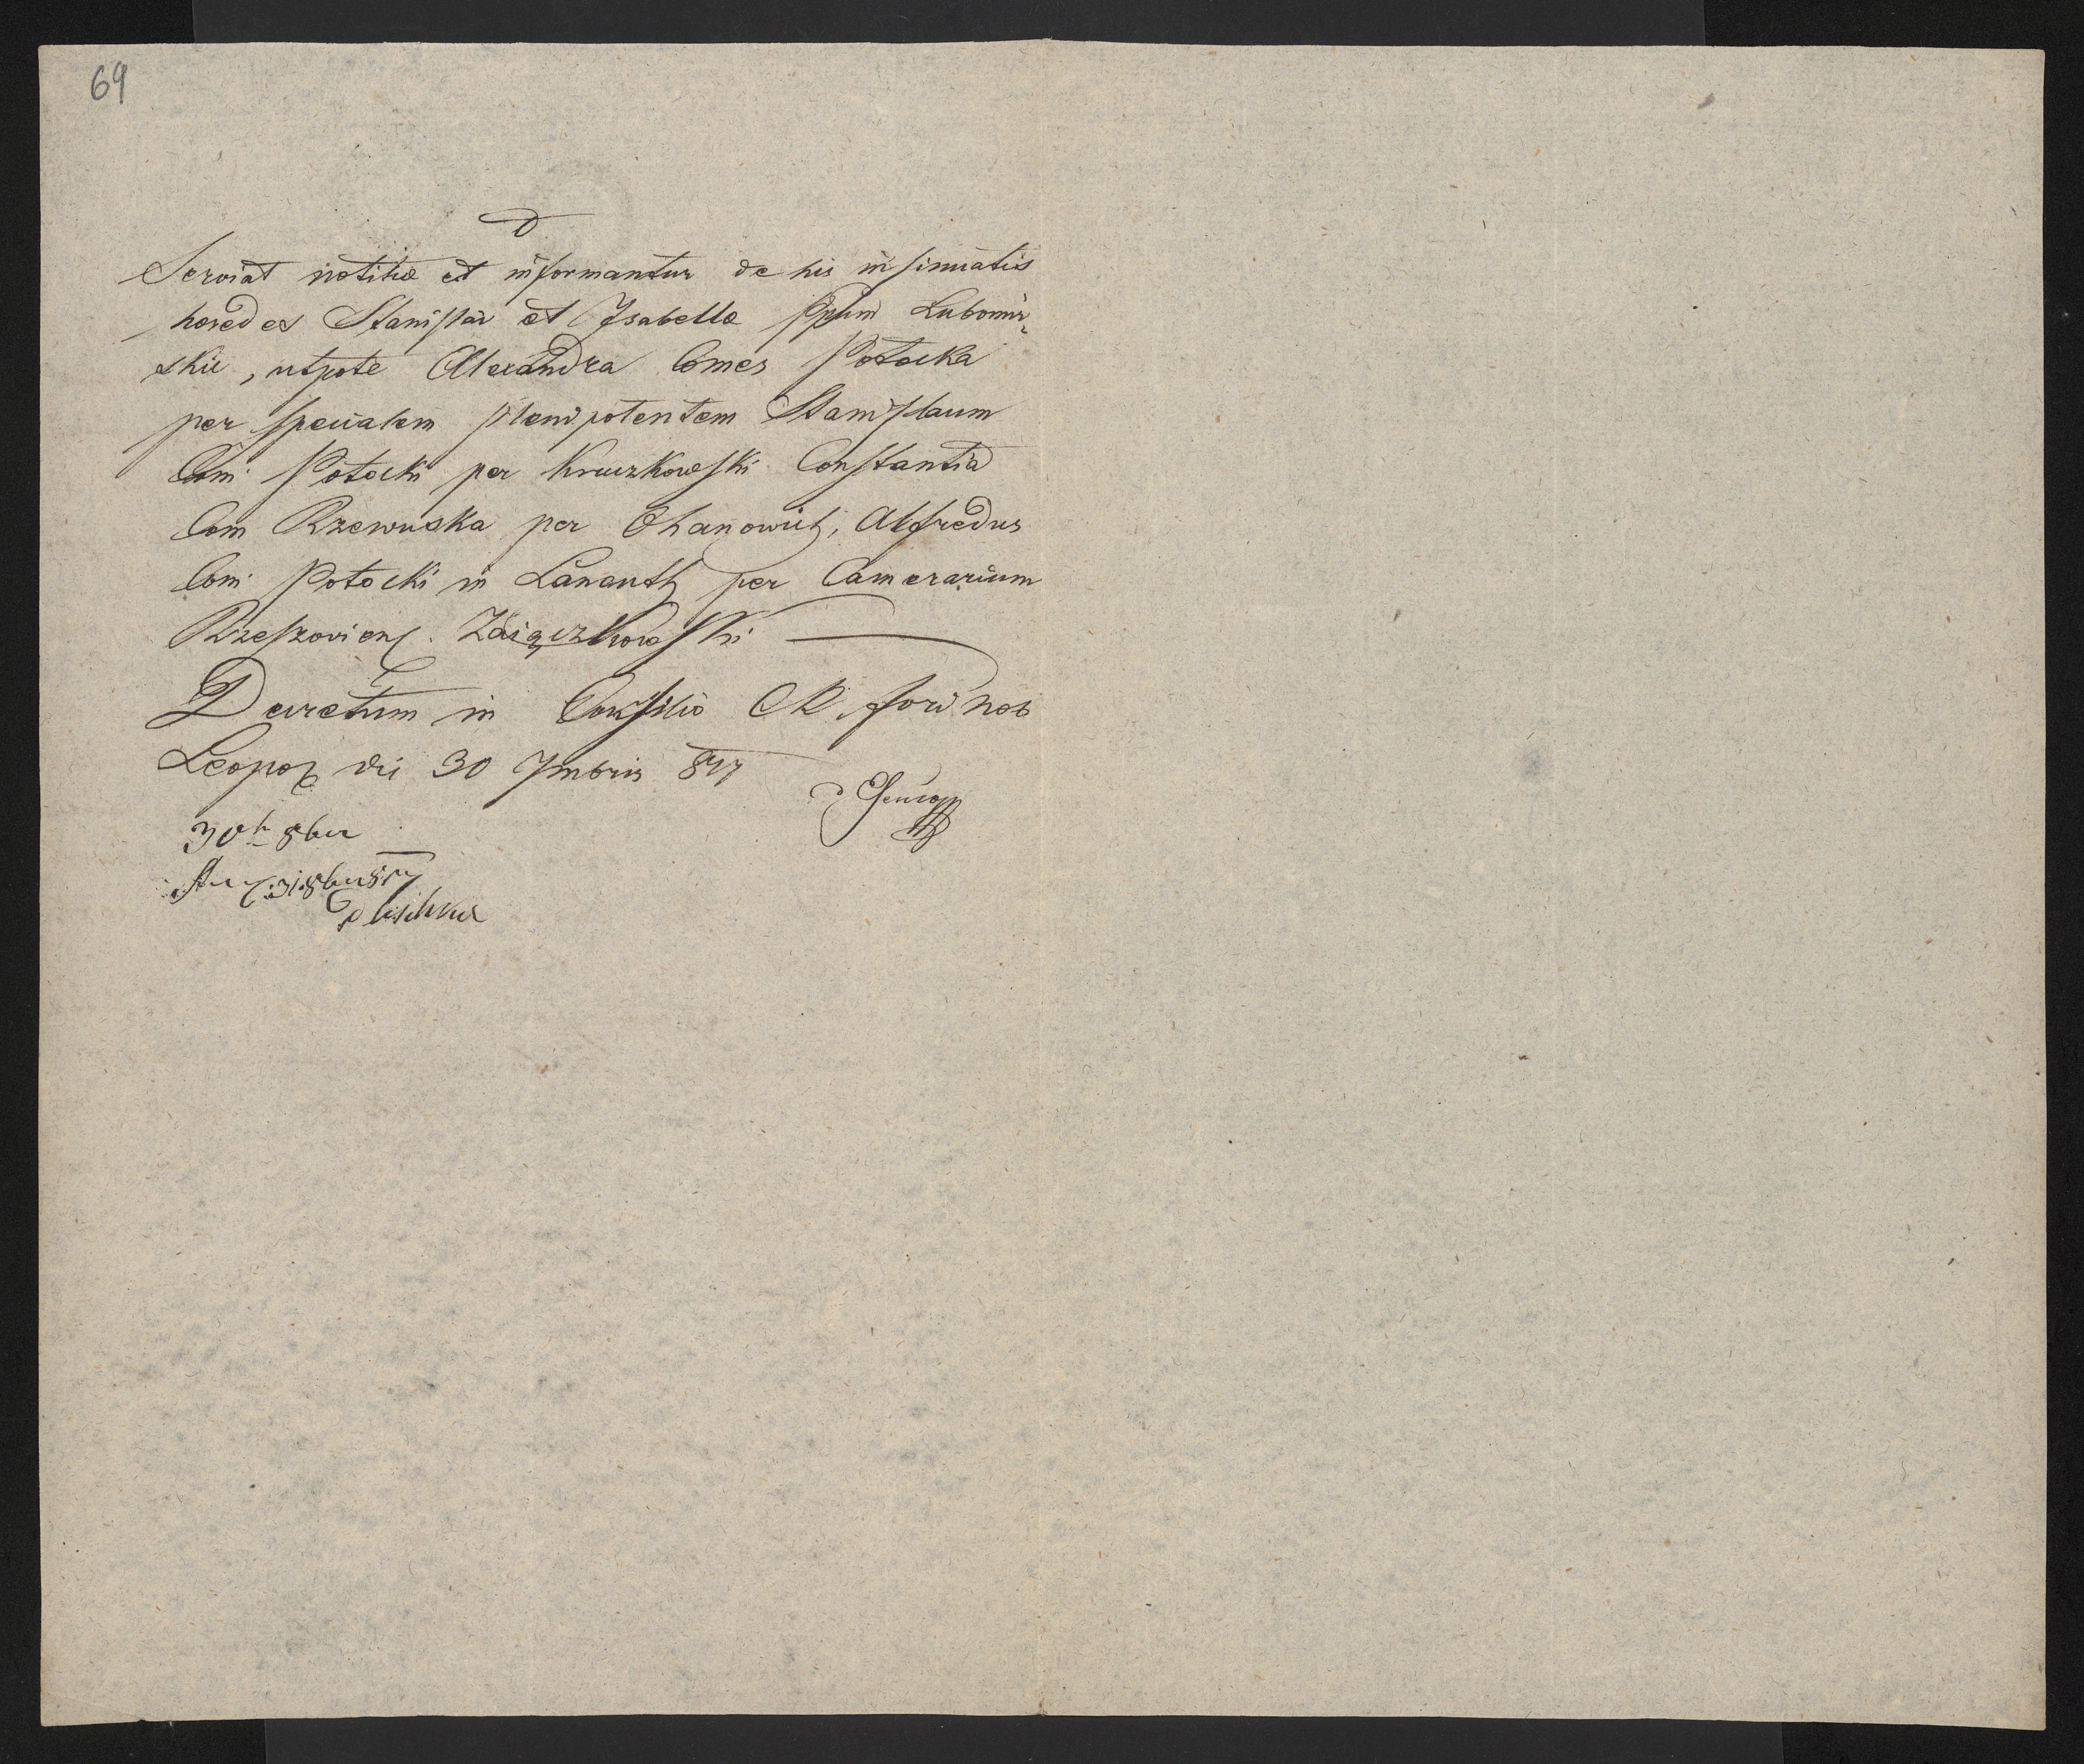 69
D
Serviat notitiæ et informantur de his insinuatis
hæredes Stanislai et Isabellæ Ppum Lubomir-
skie, utpote Alexandra Comes Potocka
per specialem plenipotentem Stanislaum
Com: Potocki per Kruczkowski Constantia
Com Rzewuska per Ohanowicz, Alfredus
Com: Potocki in Lancuth per Camerarium
Rzeszoviens. Zaiączkowski
Decretum in Consilio CR. fori nob
Leopol die 30 7mbris 817
30t 8ber
31. 8ber 817